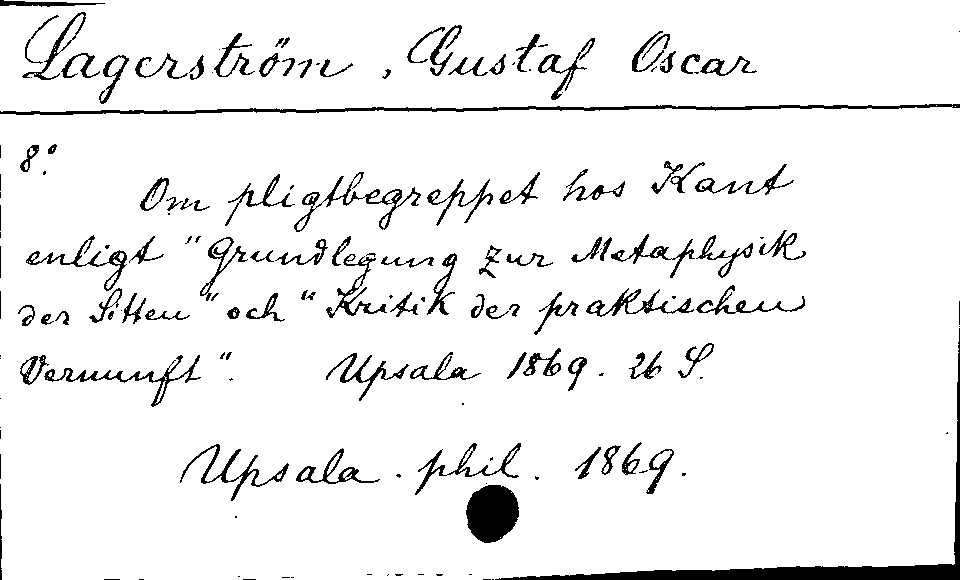 Lagerström, Gustaf Oscar
8.°
Om pligtbegreppet hos Kant
enligt "Grundlegung zur Metaphysik
der Sitten" och "Kritik der praktischen
Vernunft". Upsala 1869. 26 S.
Upsala. phil. 1869.